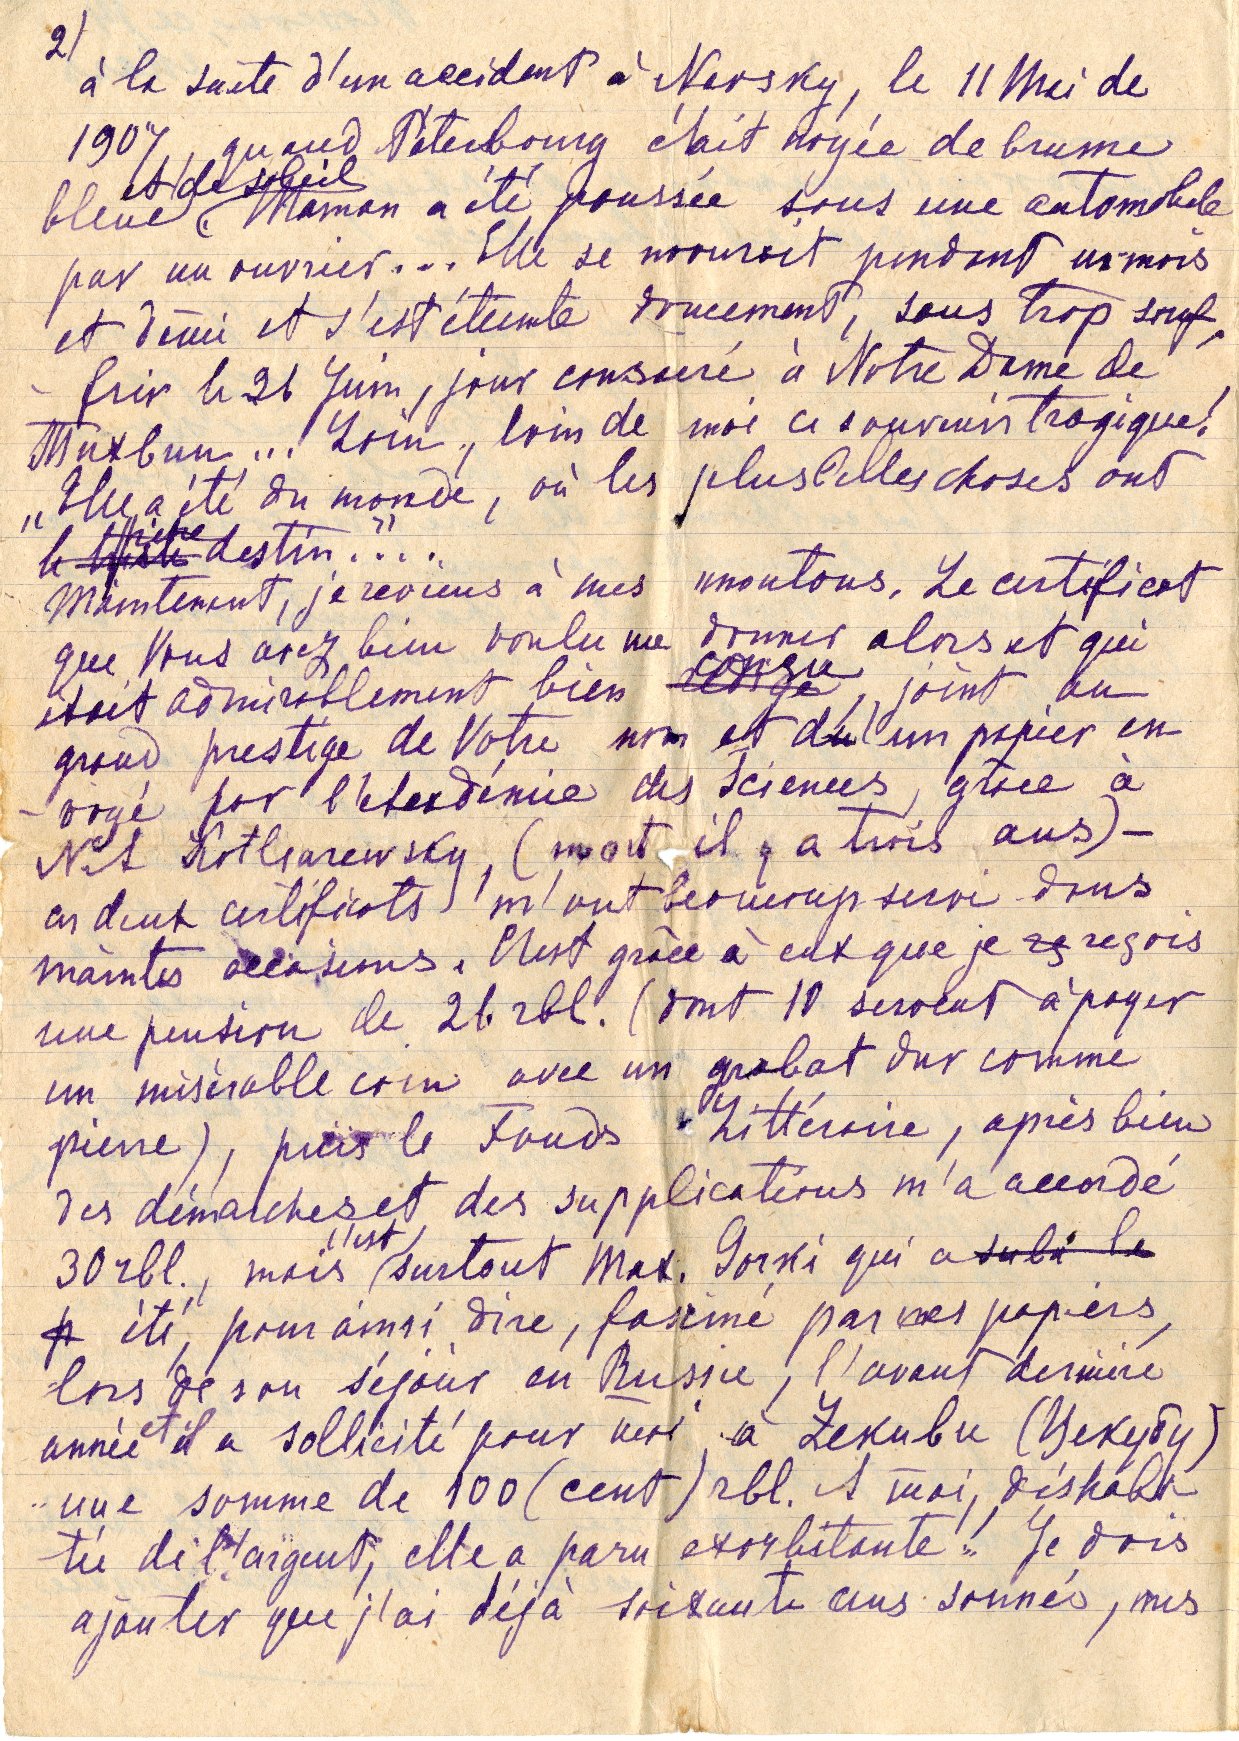 2)
à la suite d'un accident à Newsky, le 11 Mai de
1907, quand Péterbourg était noyée de brume
et de soleil
bleue. Maman a été poussée sous une automobile
par un ouvrier... Elle se mourait pendant un mois
et demi et s'est éteinte doucement, sans trop souf-
-frir le 26 Juin, jour consacré à Notre Dame de
... Loin, loin de moi ce souvenir tragique!
„Elle a été du monde, où les plus belles choses ont
le pire destin."...
Maintenant, je reviens à mes moutons. Le certificat
que Vous avez bien voulu me donner alors et qui
était admirablement bien conçu, joint au
grand prestige de Votre nom et d'un papier en-
-voyé par l'Académie des Sciences, grâce à
N. A Kotliarewsky, (mort il y a trois ans) -
ces deux certificats m'ont beaucoup servi dans
maintes occasions. C'est grâce à eux que je reçois
une pension de 26 rbl. (dont 10 servent à payer
un misérable coin avec un grabat dur comme
pierre), puis le Fonds Littéraire, après bien
des démarches et des supplications m'a accordé
30 rbl., mais c'est surtout Max. Gorki qui a subi le
p été, pour ainsi dire, fasciné par ces papiers,
lors de son séjour en Russie, l'avant dernière
année et il a sollicité pour moi à Zekubu (Цекубу)
une somme de 100 (cent) rbl. A moi, déshabi-
tué de l'argent, elle a paru exorbitante! Je dois
ajouter que j'ai déjà soixante ans sonnés, mes